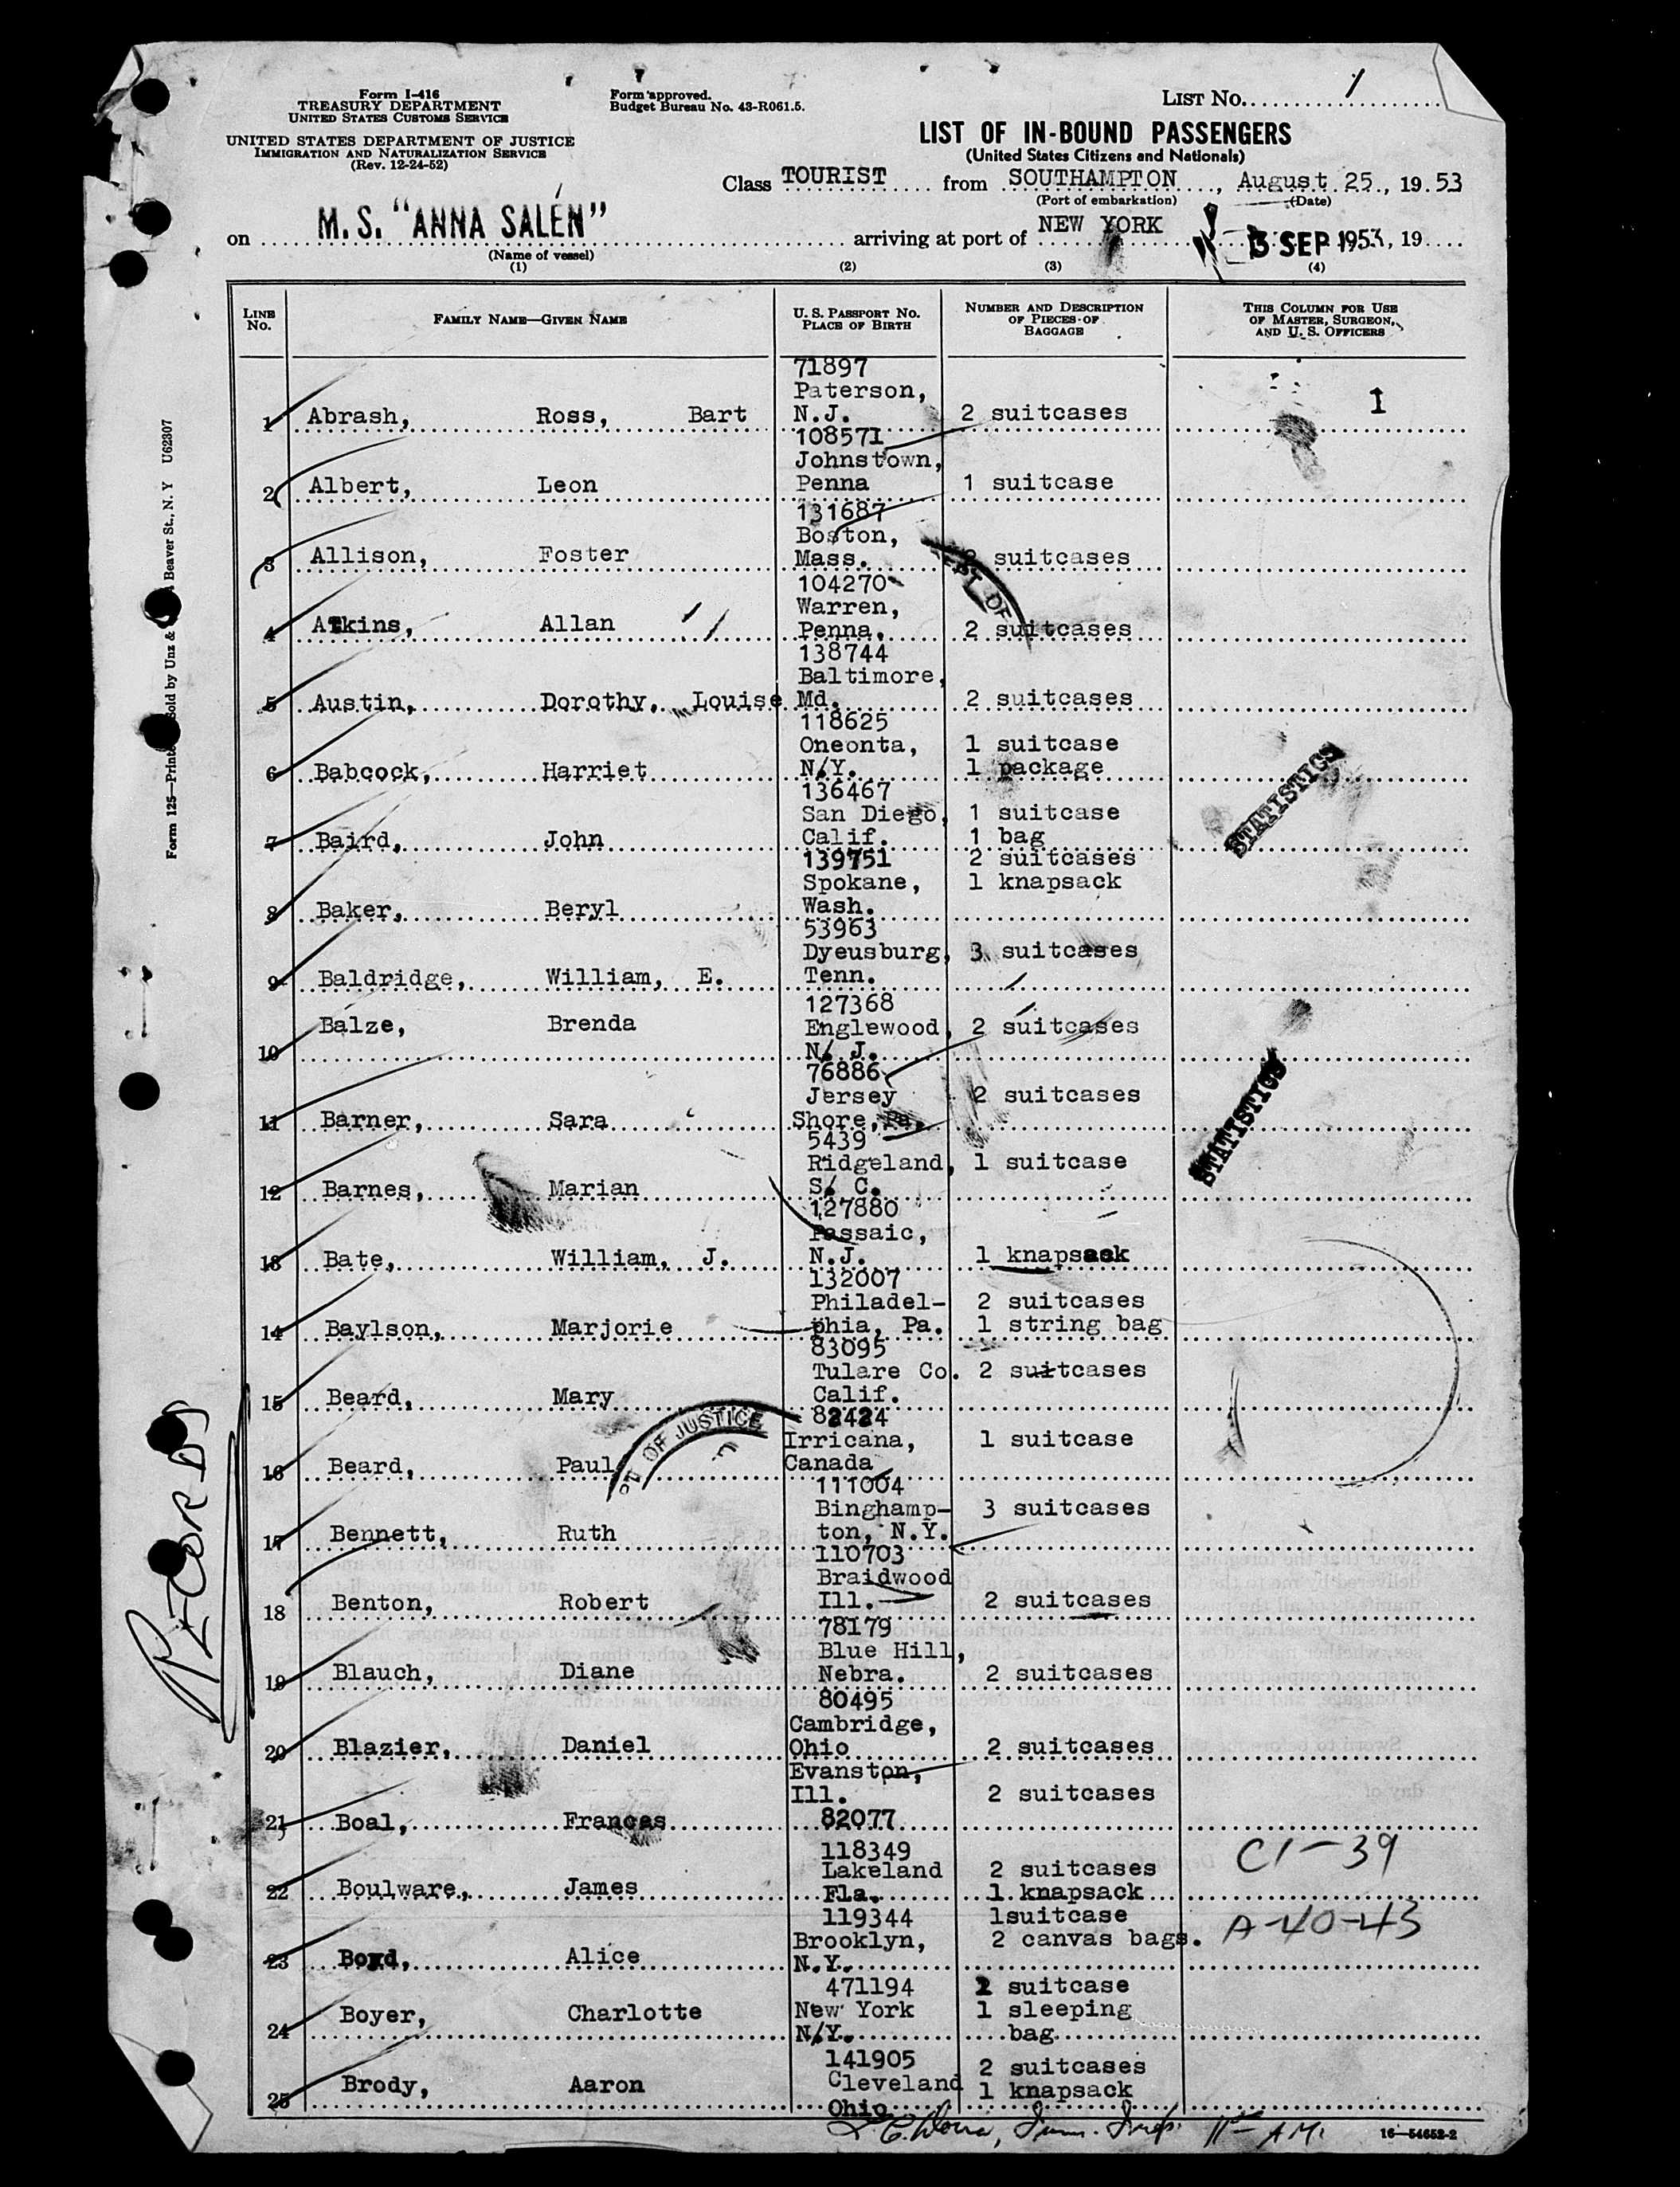 Form I-416
TREASURY DEPARTMENT
UNITED STATES CUSTOMS SERVICE
UNITED STATES DEPARTMENT OF JUSTICE
IMMIGRATION AND NATURALIZATION SERVICE
(Rev. 12-24-52)
Form approved.
Budget Bureau No. 43-R061.5.
LIST No. 1
LIST OF IN-BOUND PASSENGERS
(United States Citizens and Nationals)
Class TOURIST from SOUTHAMPTON, August 25, 1953
(Port of embarkation) (Date)
on M.S. "ANNA SALÉN" arriving at port of NEW YORK 3 SEP 1953, 19
(Name of vessel)
(1) (2) (3) (4)
LINE No. FAMILY NAME—GIVEN NAME U. S. PASSPORT No. PLACE OF BIRTH NUMBER AND DESCRIPTION OF PIECES OF BAGGAGE THIS COLUMN FOR USE OF MASTER, SURGEON, AND U. S. OFFICERS
71897
Paterson,
1 Abrash, Ross, Bart N.J. 2 suitcases 1
108571
Johnstown,
2 Albert, Leon Penna 1 suitcase
131687
Boston,
3 Allison, Foster Mass. suitcases
104270
Warren,
4 Atkins, Allan Penna. 2 suitcases
138744
Baltimore,
5 Austin, Dorothy, Louise Md. 2 suitcases
118625
Oneonta, 1 suitcase
6 Babcock, Harriet N.Y. 1 package
136467
San Diego, 1 suitcase
7 Baird, John Calif. 1 bag
139751 2 suitcases
Spokane, 1 knapsack
8 Baker, Beryl Wash.
53963
Dyeusburg, 3 suitcases
9 Baldridge, William, E. Tenn.
127368
10 Balze, Brenda Englewood, 2 suitcases
N. J.
76886
Jersey 2 suitcases
11 Barner, Sara Shore, Pa.
5439
Ridgeland, 1 suitcase
12 Barnes, Marian S. C.
127880
Passaic,
13 Bate, William, J. N.J. 1 knapsack
132007
Philadel- 2 suitcases
14 Baylson, Marjorie phia, Pa. 1 string bag
83095
Tulare Co. 2 suitcases
15 Beard, Mary Calif.
82424
Irricana, 1 suitcase
16 Beard, Paul Canada
111004
Binghamp- 3 suitcases
17 Bennett, Ruth ton, N.Y.
110703
Braidwood
18 Benton, Robert Ill. 2 suitcases
78179
Blue Hill,
19 Blauch, Diane Nebra. 2 suitcases
80495
Cambridge,
20 Blazier, Daniel Ohio 2 suitcases
Evanston,
Ill. 2 suitcases
21 Boal, Frances 82077
118349
Lakeland 2 suitcases
22 Boulware, James Fla. 1 knapsack
119344 1suitcase
Brooklyn, 2 canvas bags.
23 Boyd, Alice N.Y.
471194 1 suitcase
24 Boyer, Charlotte New York 1 sleeping
N.Y. bag
141905 2 suitcases
25 Brody, Aaron Cleveland 1 knapsack
Ohio
STATISTICS
STATISTICS
EPT OF
PT OF JUSTICE
C1-39
A-40-43
A.M.
16—54652-2
Form 125—Printe Sold by Unz & Beaver St., N. Y U62307